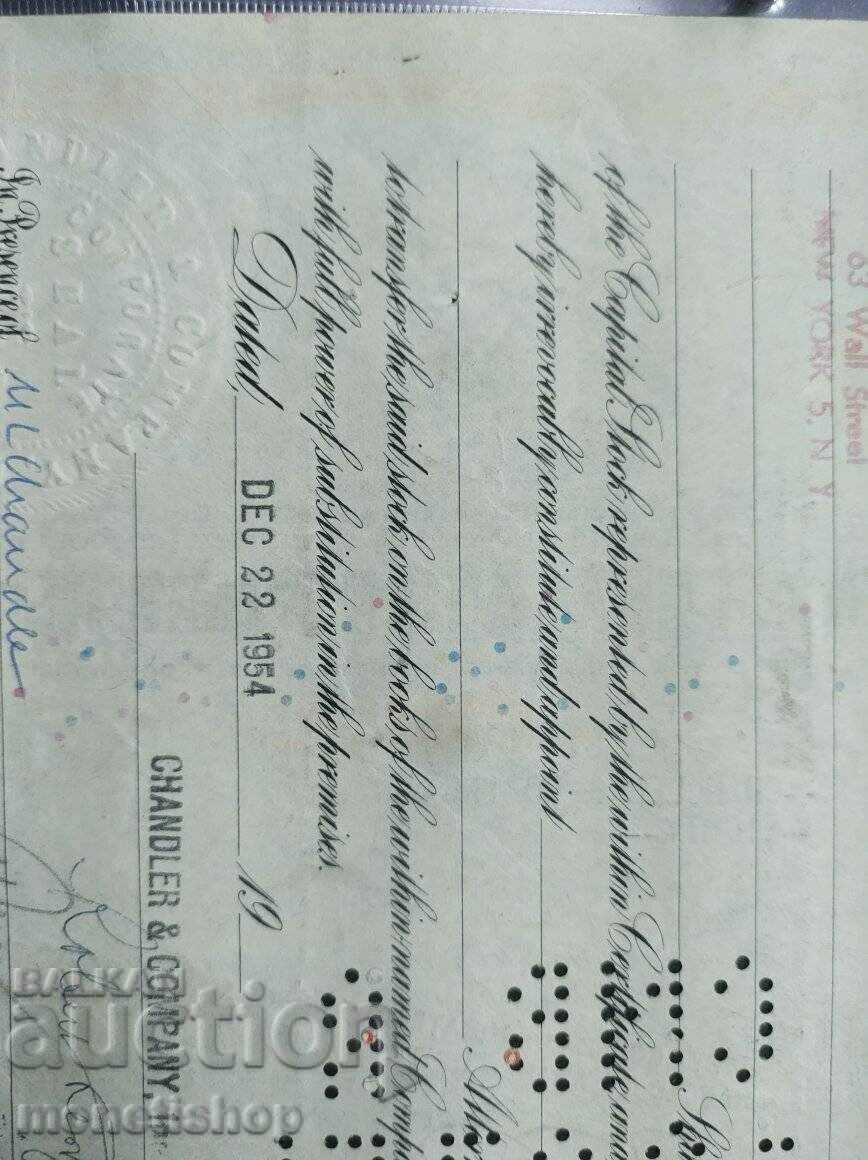 63 Wall Street
NEW YORK 5. N. Y.
of the Capital Stock represented by the within Certificate, and
hereby irrevocably constitute and appoint
to transfer the said stock on the books of the within-named
with full power of substitution in the premises.
Dated, DEC 22 1954 19
CHANDLER & COMPANY, Inc.
In Presence of
SEAL
BALKAN
auction
monetishop